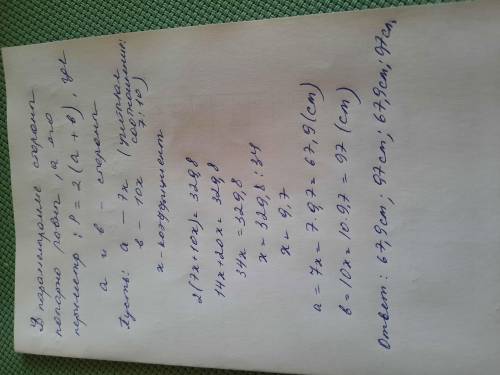 В параллелограмме стороны
попарно равны, а его
периметр: P = 2(a + в), где
a и в - стороны
Пусть: a - 7x (учитывая
в - 10x соотношение:
7:10)
x - коэффициент
2(7x+10x)= 329,8
14x+20x = 329,8
34x = 329,8
x = 329,8 : 34
x = 9,7
a = 7x = 7·9,7 = 67,9 (cm)
в = 10x = 10·9,7 = 97 (cm)
Ответ: 67,9cm; 97cm; 67,9cm; 97cm.